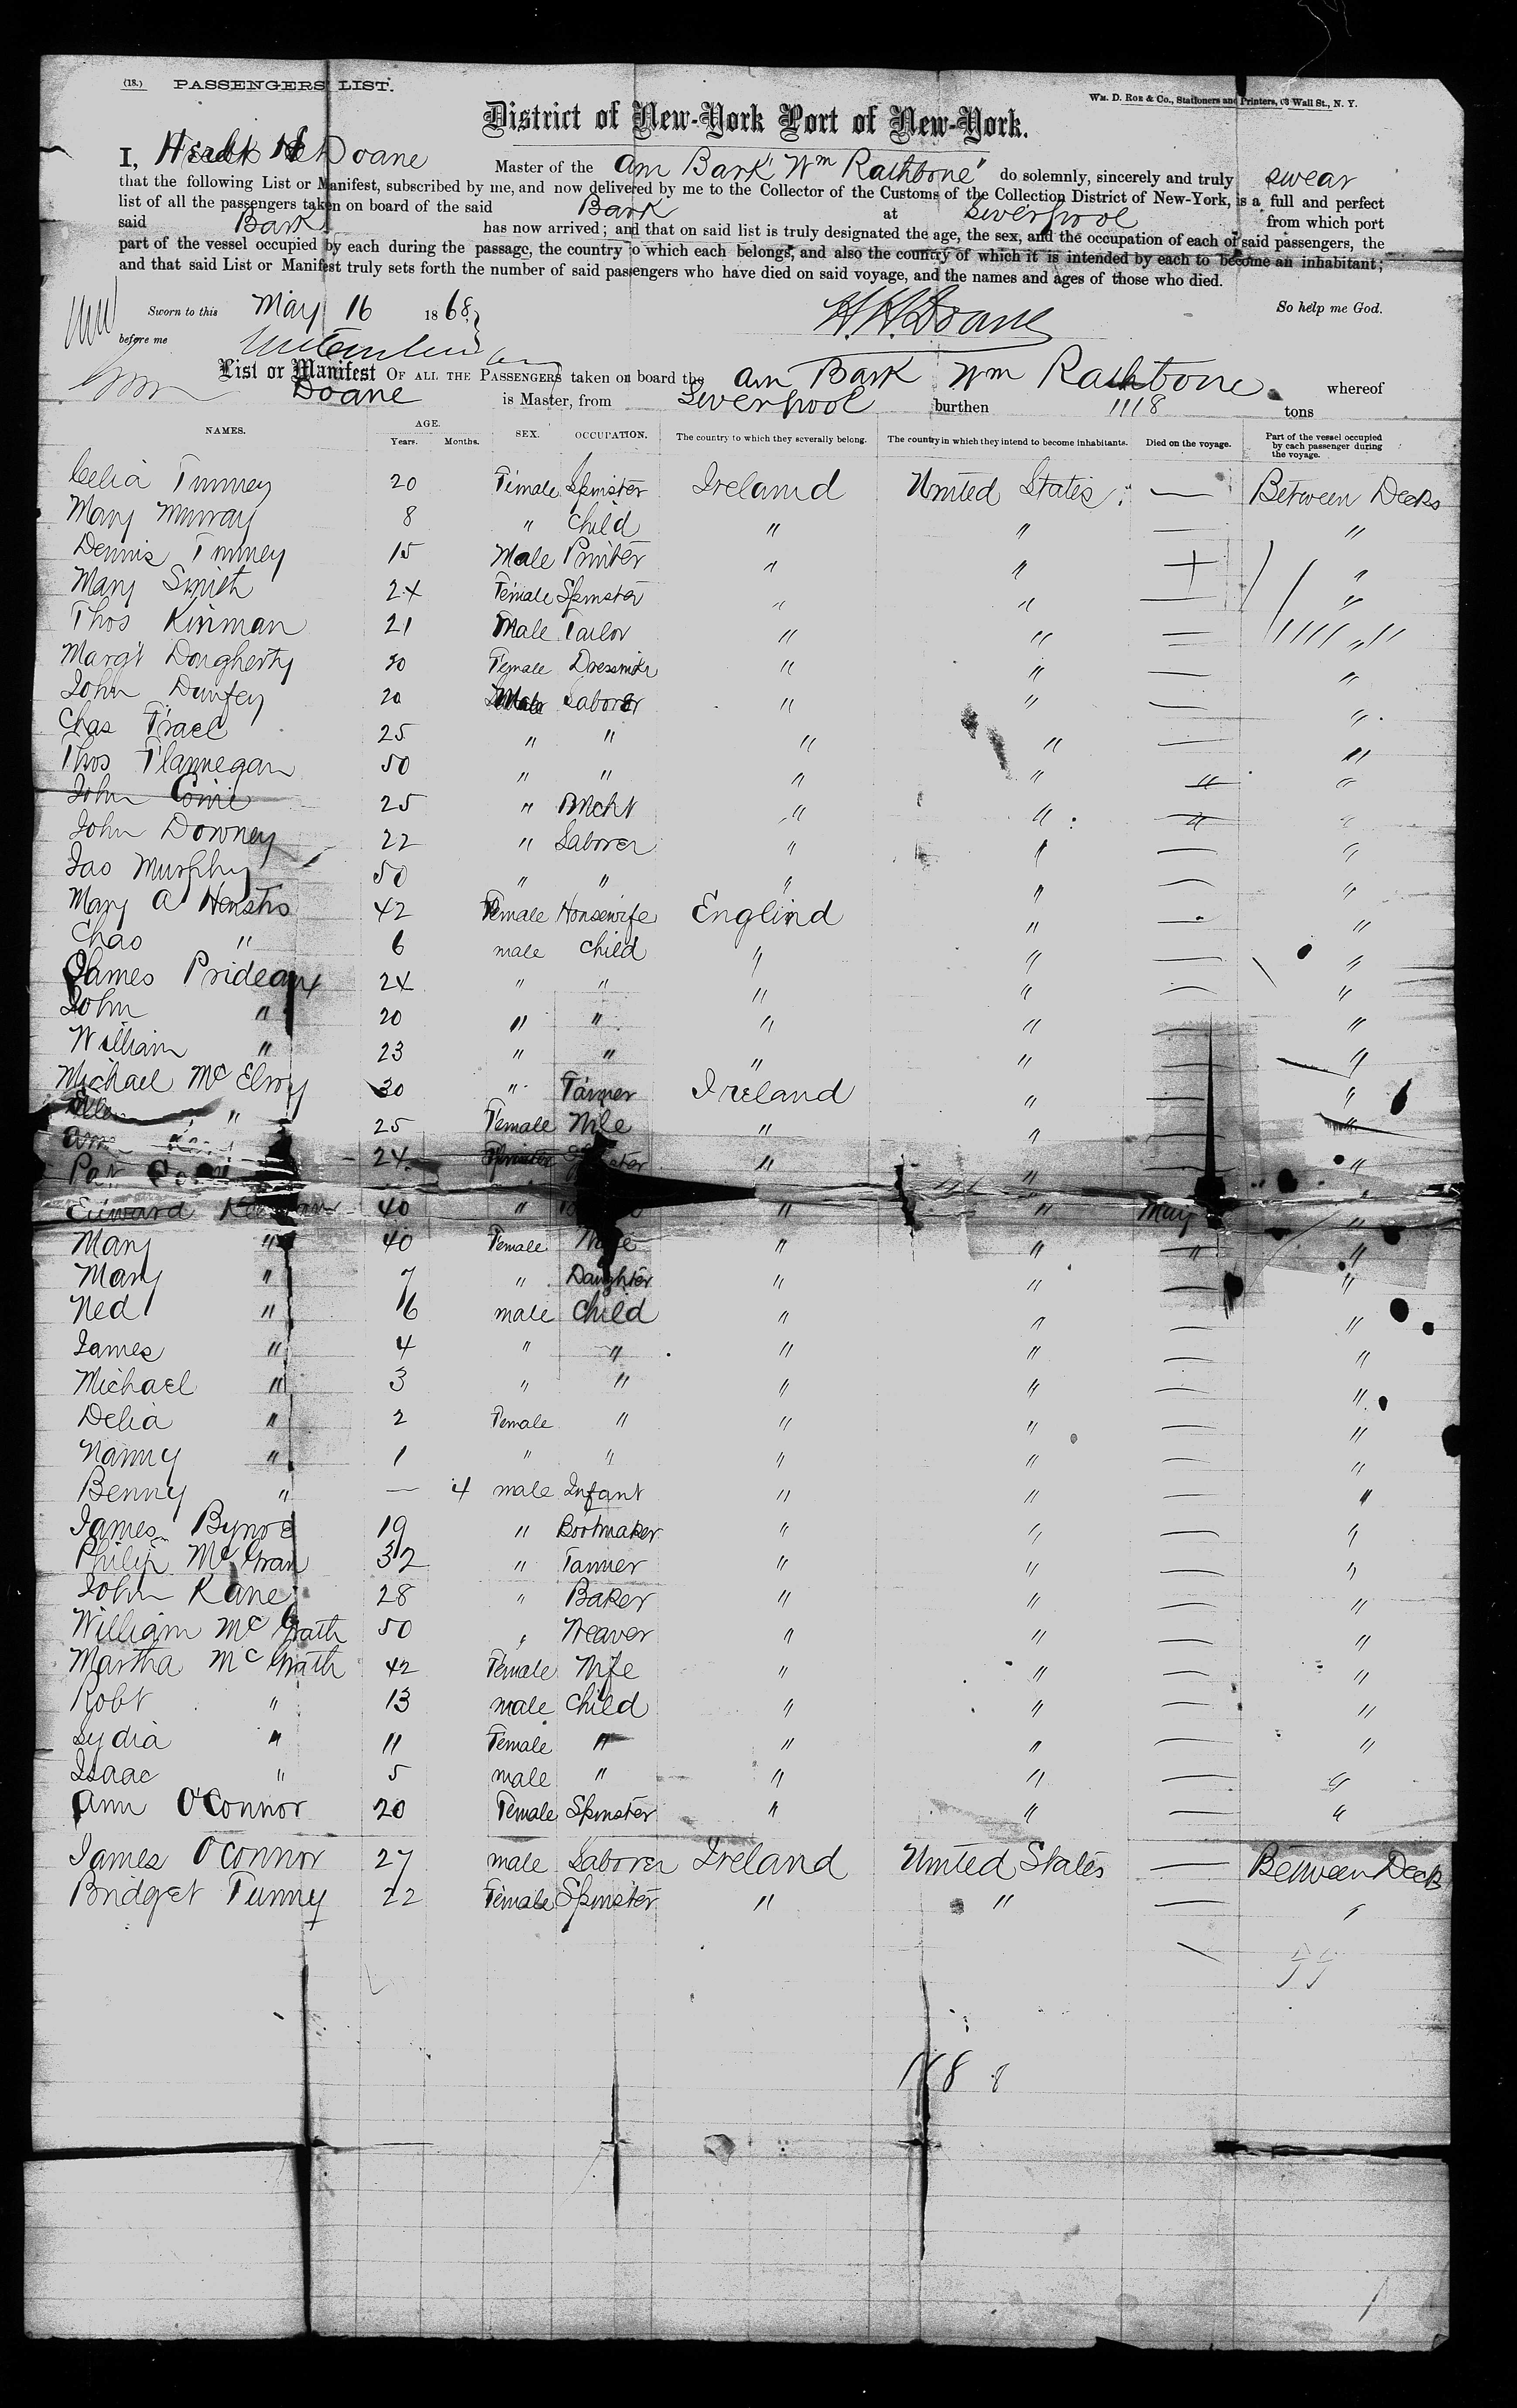 (18.) PASSENGERS LIST.
WM. D. ROE & Co., Stationers and Printers, Wall St., N. Y.
District of New-York Port of New-York.
I, Doane Master of the Am Bark "Wm Rathbone" do solemnly, sincerely and truly swear
that the following List or Manifest, subscribed by me, and now delivered by me to the Collector of the Customs of the Collection District of New-York, is a full and perfect
list of all the passengers taken on board of the said Bark at Liverpool from which port
said Bark has now arrived; and that on said list is truly designated the age, the sex, and the occupation of each of said passengers, the
part of the vessel occupied by each during the passage, the country to which each belongs, and also the country of which it is intended by each to become an inhabitant;
and that said List or Manifest truly sets forth the number of said passengers who have died on said voyage, and the names and ages of those who died.
Sworn to this May 16 1868 So help me God.
before me H. H. Doane
List or Manifest OF ALL THE PASSENGERS taken on board the Am Bark Wm Rathbone whereof
Doane is Master, from Liverpool burthen 1118 tons
NAMES. AGE. Years. Months. SEX. OCCUPATION. The country to which they severally belong. The country in which they intend to become inhabitants. Died on the voyage. Part of the vessel occupied by each passenger during the voyage.
Celia Tunney 20 Female Spinster Ireland United States — Between Decks
Mary Murray 8 " Child " " — "
Dennis Tunney 15 Male Printer " " "
Mary Smith 24 Female Spinster " " — "
Thos Kinman 21 Male Tailor " " — "
Margt Dougherty 30 Female Dressmkr " " — "
John Dunfey 20 Male Laborer " " — "
Chas 25 " " " " — "
Thos Flannegan 50 " " " " "
John 25 " " " "
John Downey 22 " Laborer " " — "
Jas Murphy 50 " " " " — "
Mary A 42 Female Housewife England " — "
Chas " 6 male Child " " — "
James Prideaux 24 " " " " — "
John " 20 " " " " — "
William " 23 " " " " — "
Michael McElroy 30 " Farmer Ireland " — "
Ellen " 25 Female Wife " " — "
24 " " — "
Pat
Edward 40 " " " May "
Mary " 40 Female Wife " " " "
Mary " 7 " Daughter " " — "
Ned " 6 male Child " " — "
James " 4 " " " " — "
Michael " 3 " " " " — "
Delia " 2 Female " " " — "
Nanny " 1 " " " " — "
Benny " — 4 male Infant " " — "
James Byrne 19 " Bootmaker " " — "
Philip McGran 32 " Tanner " " — "
John Kane 28 " Baker " " — "
William McGrath 50 " Weaver " " — "
Martha McGrath 42 Female Wife " " — "
Robt " 13 male Child " " — "
Lydia " 11 Female " " " — "
Isaac " 5 male " " " — "
Ann O'Connor 20 Female Spinster " " — "
James O'Connor 27 male Laborer Ireland United States — Between Decks
Bridget Tunny 22 Female Spinster " " — "